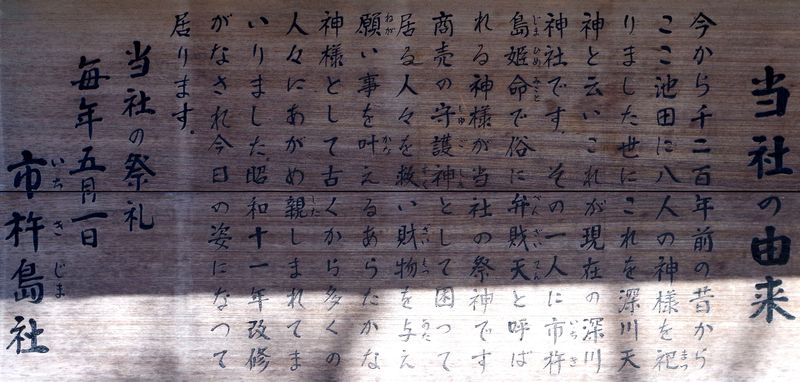 当社の由来
今から千二百年前の昔から
ここ池田に八人の神様を祀
りました世にこれを深川天
神と云いこれが現在の深川
神社です。その一人に市杵
島姫命で俗に弁財天と呼ば
れる神様が当社の祭神です
商売の守護神として困って
居る人々を救い財物を与え
願い事を叶えるあらたかな
神様として古くから多くの
人々にあがめ親しまれてま
いりました。昭和十一年改修
がなされ今日の姿になって
居ります。
当社の祭礼
毎年五月一日
市杵島社